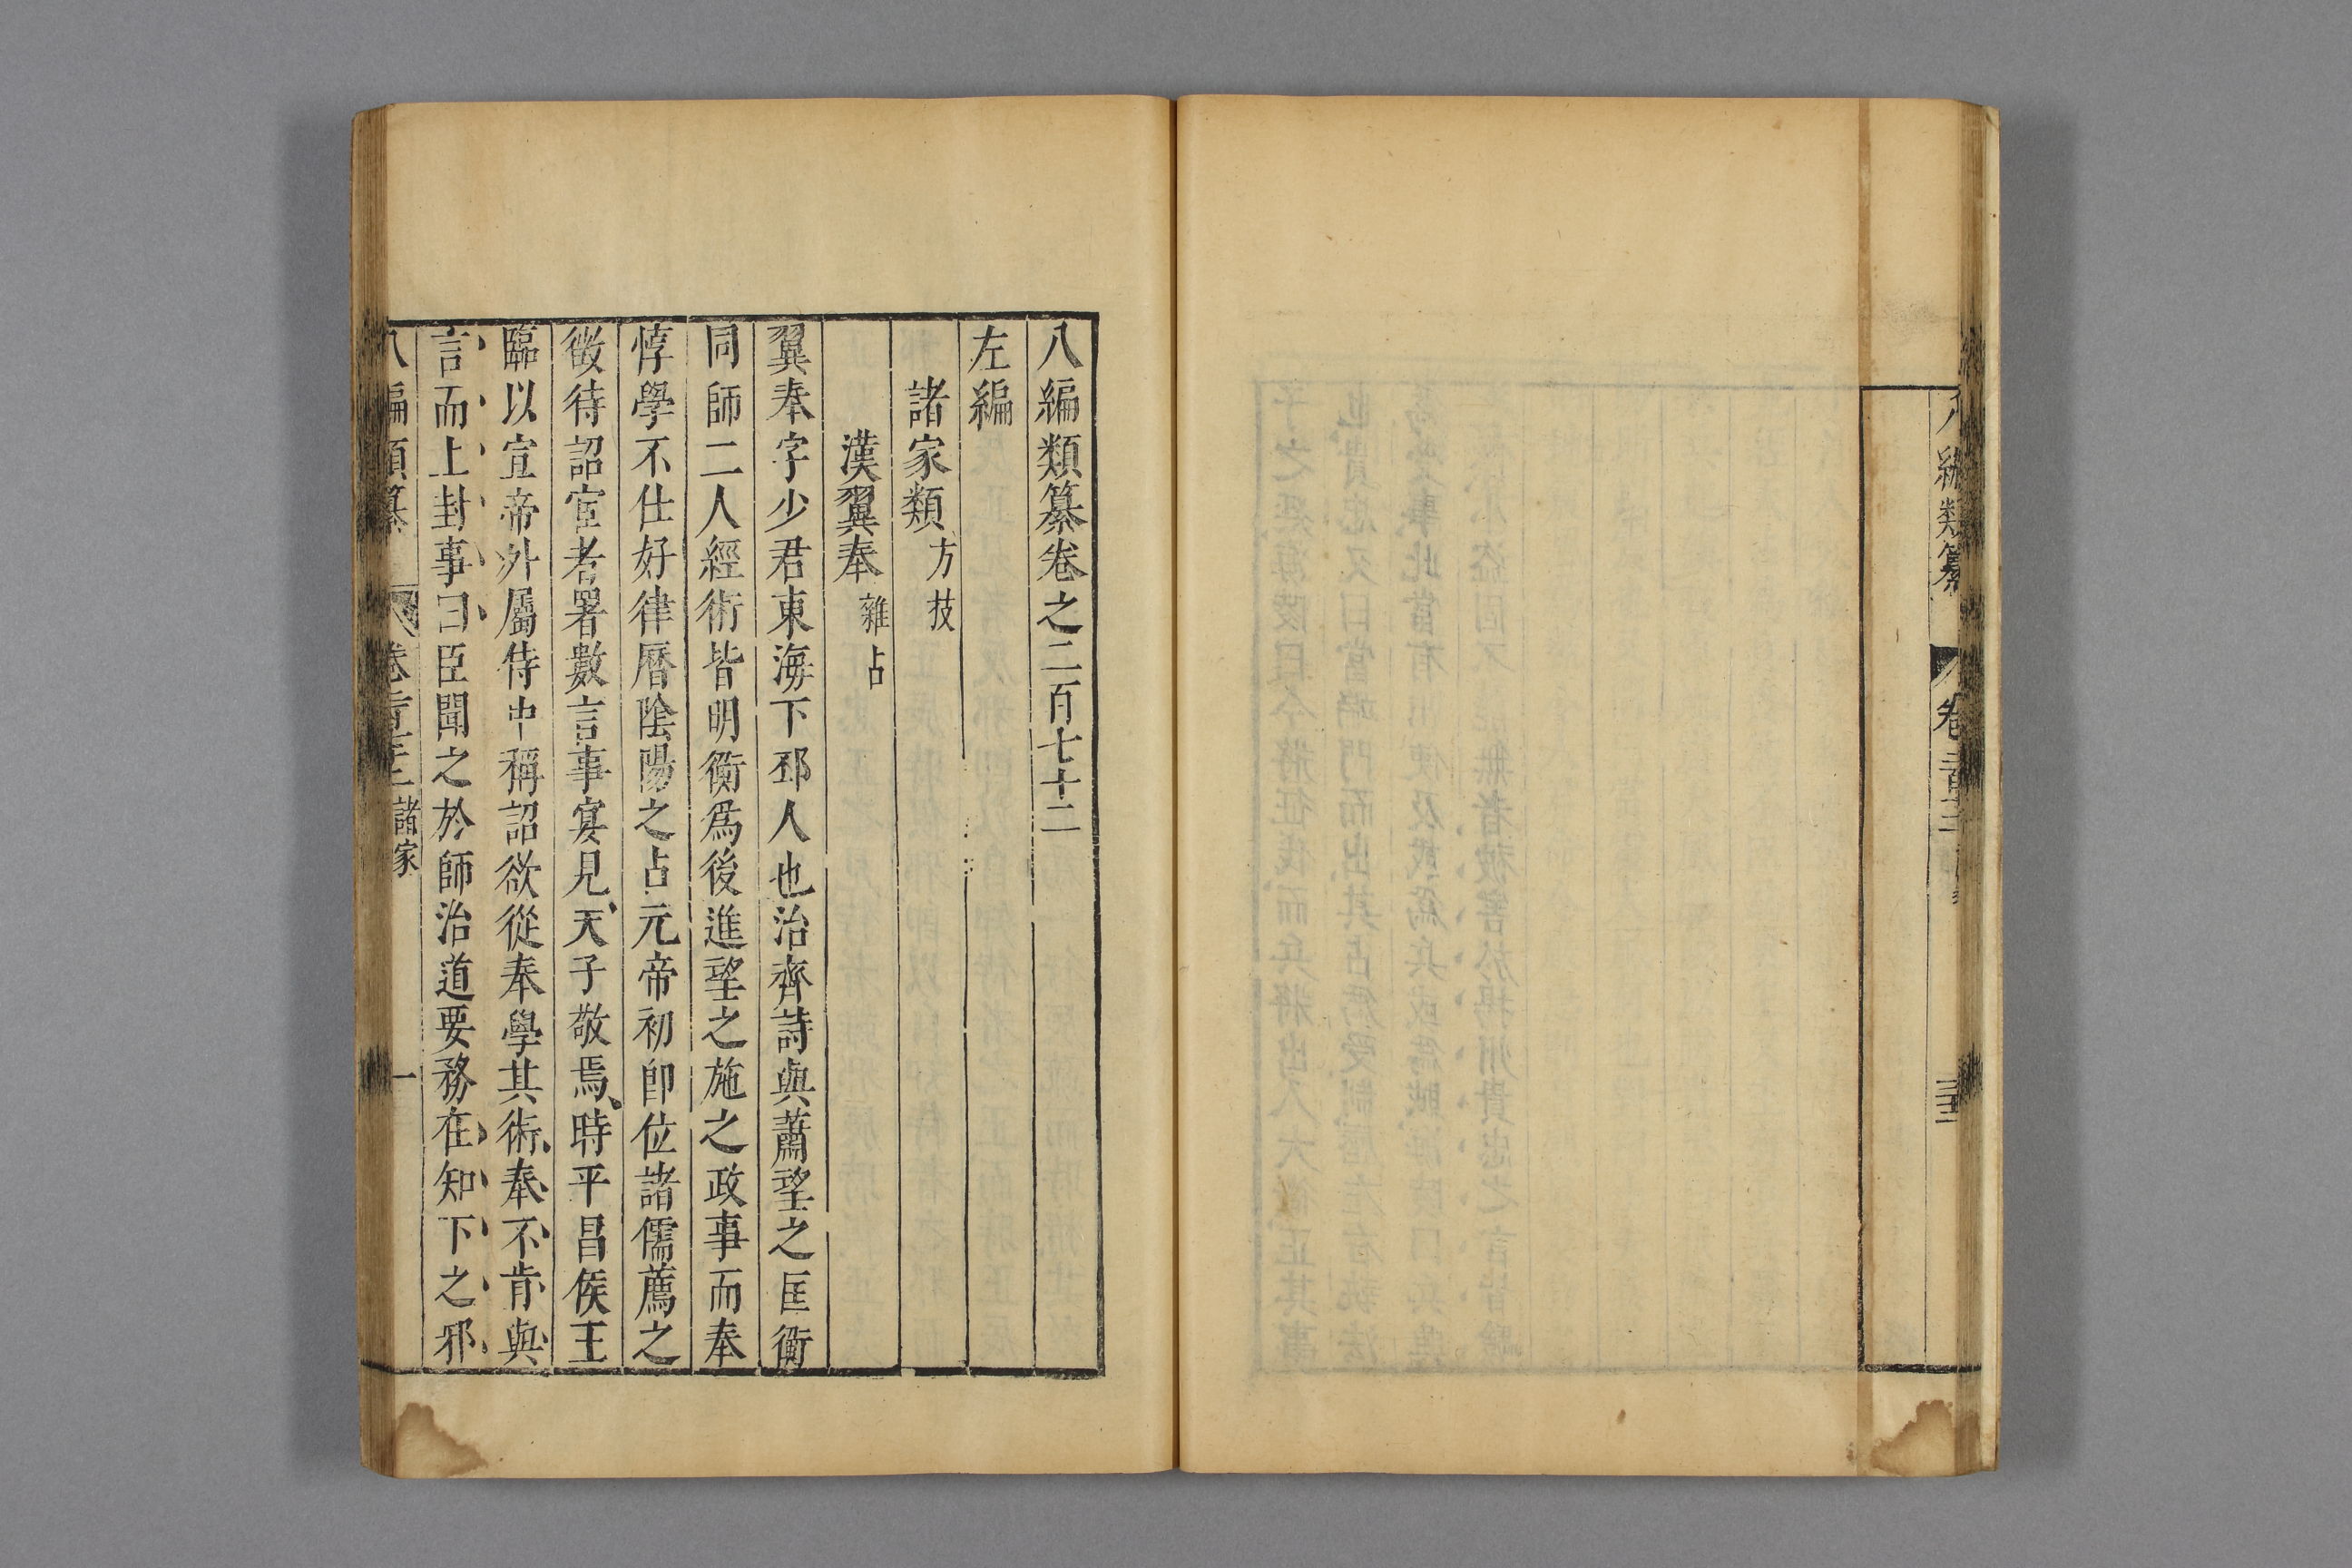 八編類纂
八編類纂卷之二百七十二
左編
諸家類 方技
漢翼奉 雜占
翼奉字少君東海下邳人也治齊詩與蕭望之匡衡
同師二人經術皆明衡爲後進望之施之政事而奉
惇學不仕好律曆陰陽之占元帝初卽位諸儒薦之
徵待詔宦者署數言事宴見天子敬焉時平昌侯王
臨以宣帝外屬侍中稱詔欲從奉學其術奉不肯與
言而上封事曰臣聞之於師治道要務在知下之邪
八編類纂 卷 諸家 一